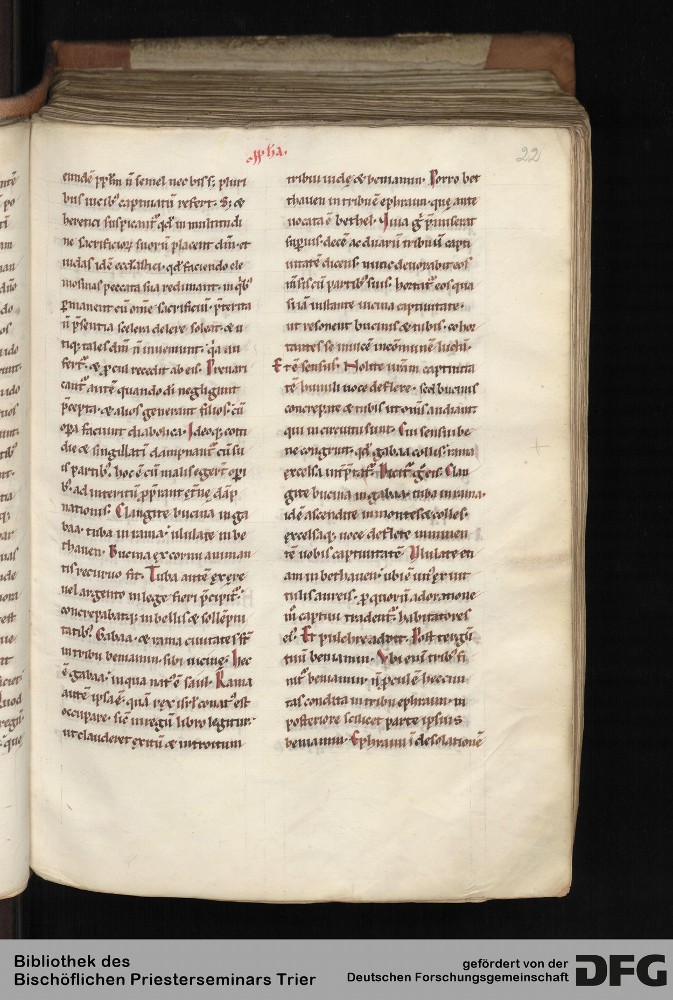 22
eundē pph̄m n̄ semel nec bis sꝫ pluri
bus uicibꝰ captiuatū refert. Sꝫ &
heretici suspicant᷑ qd̓ in multitudi
ne sacrificioꝝ suoꝝ placent dn̄m. et
iudas idē eccl̓astici. qd̓ faciendo ele
mosinas peccata sua redimant. in qͥbꝰ
ꝑmanent cū om̄e sacrificiū. p̄terita
n̄ p̄sentia scelera delere soleat. & u
tiqꝫ tales dn̄m n̄ inueniunt. qͥa au
fert᷑. & ꝓcul recedit ab eis. Preuari
cant᷑ autē quando dī neglegunt
p̄cepta. & alios generant filios. cū
opa faciunt diabolica. Ideoqꝫ coti
die & singillatī dampnant᷑ cū su
is partibꝰ. hoc ē cū malis egert̄ opi
bꝰ. ad interitū ꝓpant et̄ne dāp
nationis. Clangite bucina in ga
baa. tuba in rama. ululate in be
thauen. Bucina ex cornu animan
tis recuruo fit. Tuba autē ex ere
uel argento in lege fieri p̄cipit᷑.
concrepabatqꝫ in bellis & sollēpni
tatibꝰ. Gabaa. & rama ciuitates st̄
in tribu beniamin. sibi uicine. Hec
ē gabaa. in qua natꝰ ē saul. Rama
autē ipsa ē. quā rex isrl̓ conatꝰ est
occupare. sic̄ in regū libro legitur.
ut clauderet exitū & introitum
tribui iudę & beniamin. Porro bet
thauen in tribu ē ephraim. quę ante
uocata ē bethel. Quia gͦ p̄miserat
supius. decē ac duarū tribuū capti
uitatē dicens. nunc deuorabit eos
mensis cū partibꝰ suis. hortat᷑ eos qua
si iā instante uicina captiuitate.
ut resonent bucinis & tubis. cohor
tantes se inuicē in com̄mune luctū.
Et ē sensus. Nolite ur̄am captiuita
tē humili uoce deflere. sed bucinis
concrepate & tubis ut om̄s audiant
qui in circuitu sunt. Cui sensui be
ne congruit. qd̓ gabaa collis. rama
excelsa int̓p̄tat᷑. Dicit᷑ gͦ eis. Clan
gite bucina in gabaa. tuba in rama.
idē ascendite in montes & colles.
excelsaqꝫ uoce deflete imminen
tē uobis captiuitatē. Ululate eti
am in bethauen. ubi ē unꝰ ex uit
tulis aureis. ꝓ quorū adoratione
uī captiui tradent᷑. habitatores
eiꝰ. Et pulchre addit. Post tergū
tuū beniamin. Ubi enī tribꝰ fi
nit᷑ beniamin. n̄ ꝓcul ē hec ciui
tas condita in tribu ephraim. in
posteriore scilicet parte ipsius
beniamin. Ephraim ī desolationē
Bibliothek des
Bischöflichen Priesterseminars Trier
gefördert von der
Deutschen Forschungsgemeinschaft
DFG